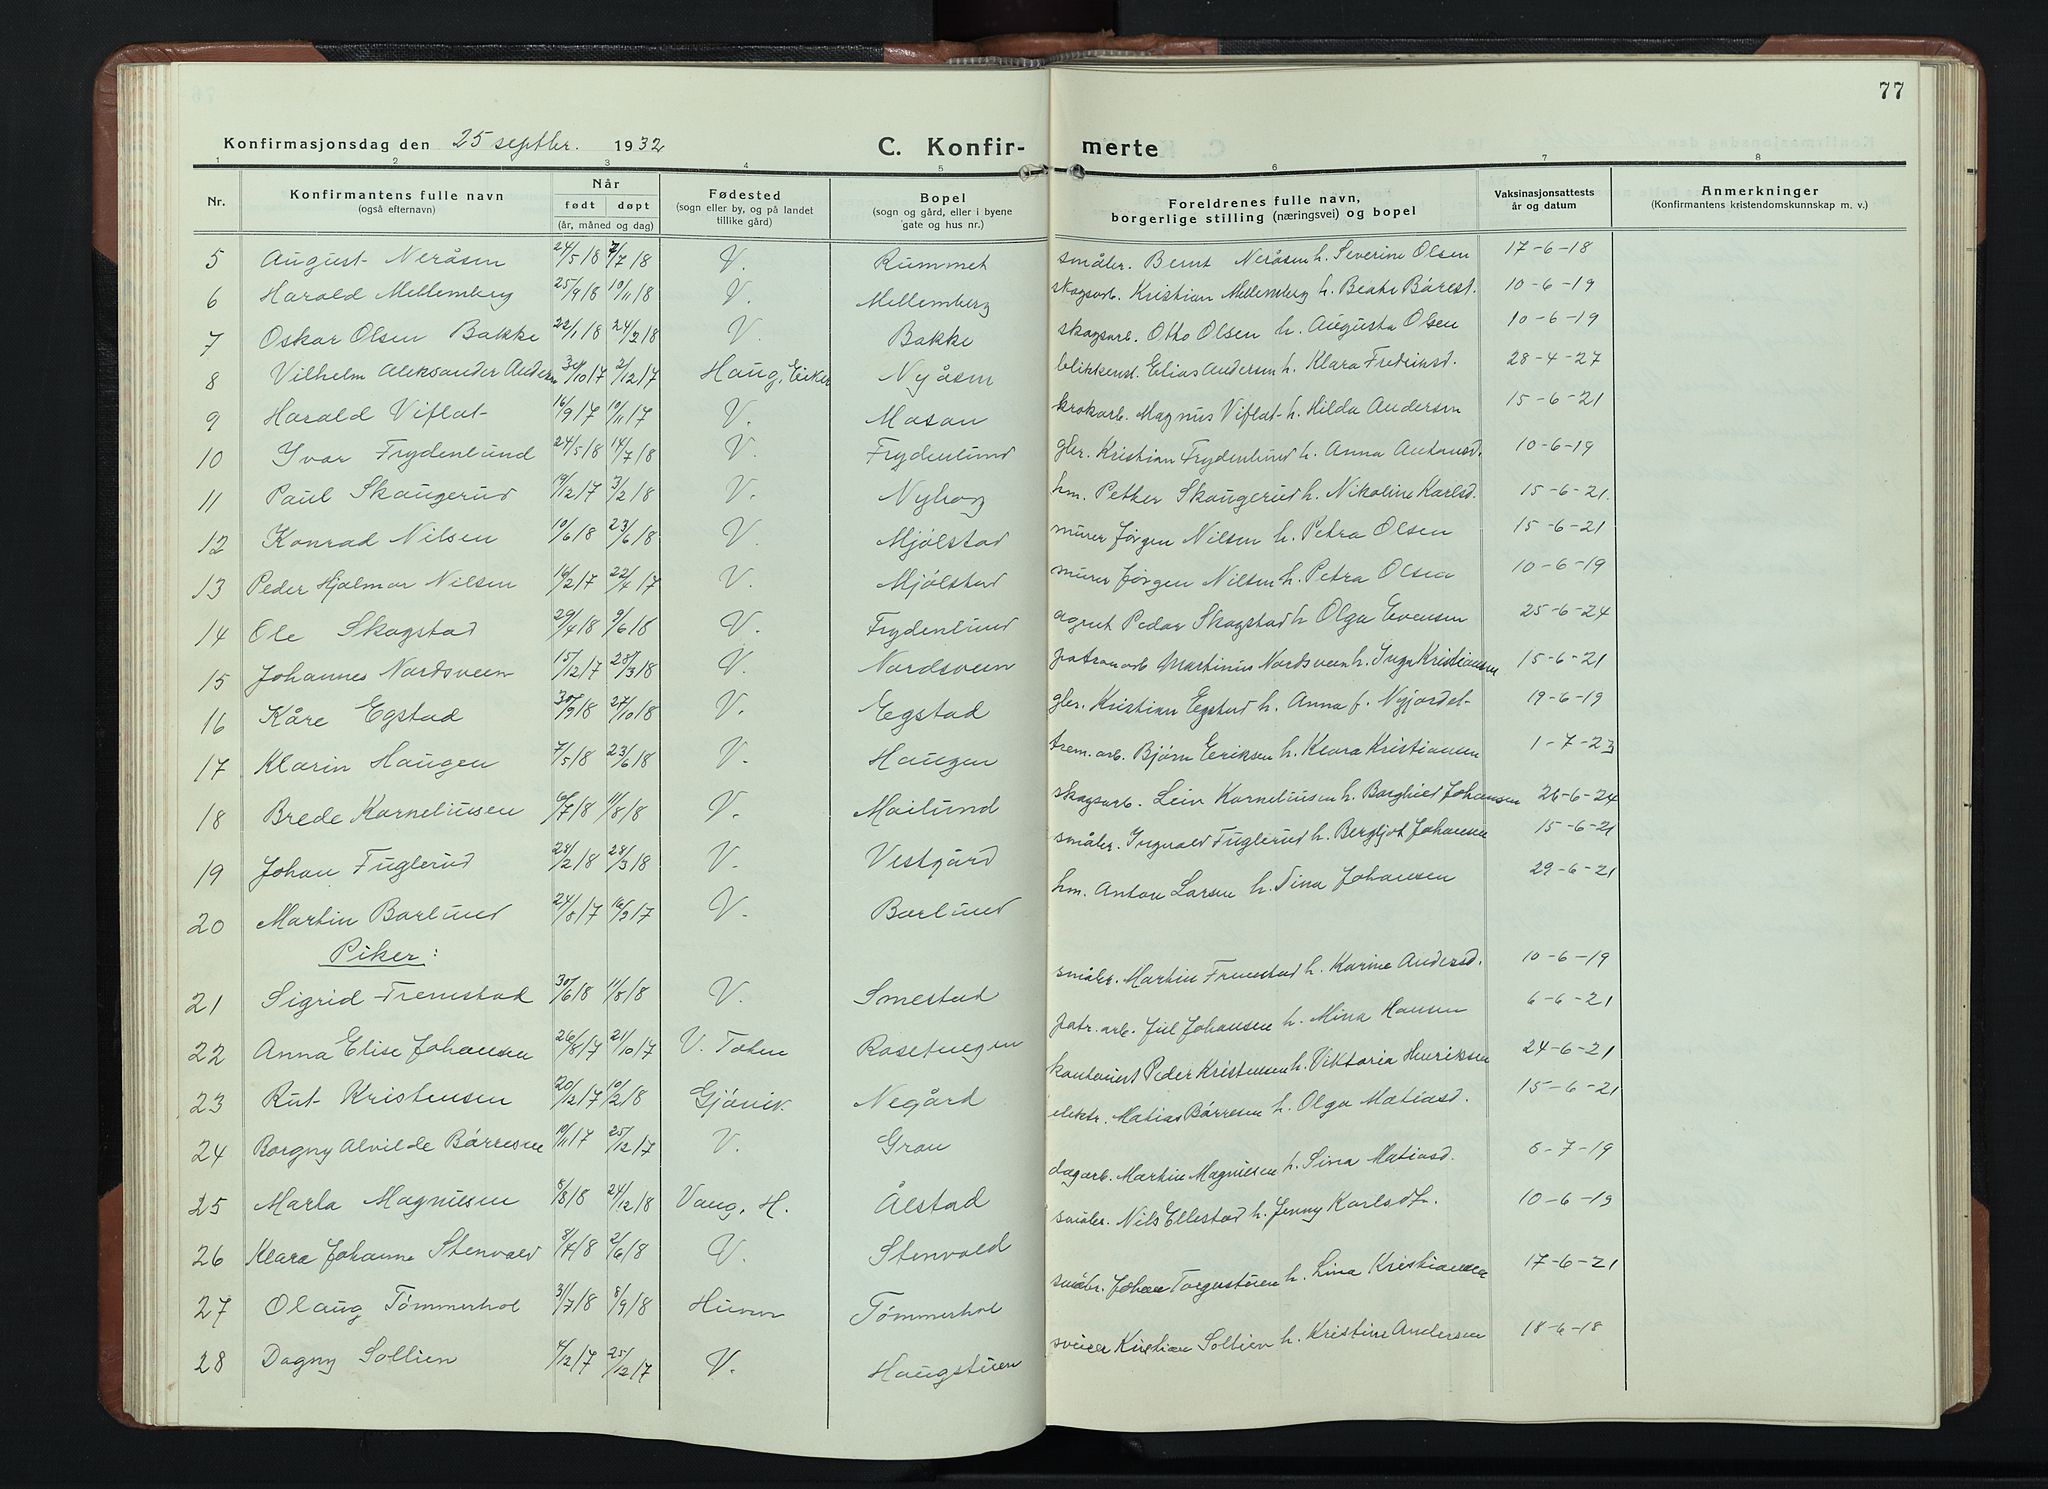 77
Konfirmasjonsdag den 25 septbr. 1932 C. Konfir- merte
1 2 3 4 5 6 7 8
Nr. Konfirmantens fulle navn (også efternavn) Når født døpt (år, måned og dag) Fødested (sogn eller by, og på landet tillike gård) Bopel (sogn og gård, eller i byene gate og hus nr.) Foreldrenes fulle navn, borgerlige stilling (næringsvei) og bopel Vaksinasjonsattests år og datum Anmerkninger (Konfirmantens kristendomskunnskap m. v.)
5 August Neråsen 24/5 18 /7 18 V. Rummet småbr. Bernt Neråsen h. Severine Olsen 17-6-18
6 Harald Mellemberg 25/9 18 10/11 18 V. Mellemberg skogsarb. Kristian Mellemberg h. Beate Børest. 10-6-19
7 Oskar Olsen Bakke 22/1 18 24/2 18 V. Bakke skogsarb. Otto Olsen h. Augusta Olsen 10-6-19
8 Vilhelm Aleksander Andersen 30/10 17 2/12 17 Haug, Eiker Nyåsen blikkensl. Elias Andersen h. Klara Fredriksd. 28-4-27
9 Harald Viflat 16/9 17 10/11 17 V. Mosan krokarb. Magnus Viflat h. Hilda Andersen 15-6-21
10 Yvar Frydenlund 24/5 18 14/7 18 V. Frydenlund gbr. Kristian Frydenlund h. Anna Antonsd. 10-6-19
11 Paul Skaugerud 19/12 17 3/2 18 V. Nyhog hm. Petter Skaugerud h. Nikoline Karlsd. 15-6-21
12 Konrad Nilsen 10/6 18 23/6 18 V. Mjølstad murer Jørgen Nilsen h. Petra Olsen 15-6-21
13 Peder Hjalmar Nilsen 16/2 17 22/4 17 V. Mjølstad murer Jørgen Nilsen h. Petra Olsen 10-6-19
14 Ole Skogstad 29/4 18 9/6 18 V. Frydenlund agent Peder Skogstad h Olga Evensen 25-6-24
15 Johannes Nordsveen 15/12 17 28/3 18 V. Nordsveen patronarb Martinius Nordsveen h. Inga Kristiansen 15-6-21
16 Kåre Egstad 30/9 18 27/10 18 V. Egstad gbr. Kristian Egstad h. Anna f. Nyjordet 19-6-19
17 Klarin Haugen 7/5 18 23/6 18 V. Haugen trem.arb. Bjørn Eriksen h. Klara Kristiansen 1-7-23
18 Brede Korneliusen 6/7 18 11/8 18 V. Moilund skogsarb. Leiv Korneliusen h. Borghild Johansen 26-6-24
19 Johan Fuglerud 28/2 18 28/3 18 V. Vestgård småbr. Ingvald Fuglerud h. Bergljot Johansen 15-6-21
20 Martin Borlund 24/8 17 16/9 17 V. Borlund hm. Anton Larsen h. Tina Johansen 29-6-21
Piker:
21 Sigrid Fremstad 30/6 18 11/8 18 V. Smestad småbr. Martin Fremstad h. Karine Andersd. 10-6-19
22 Anna Elise Johansen 26/8 17 21/10 17 V. Toten Rosetengen patr.arb. Juel Johansen h. Mina Hansen 6-6-21
23 Rut Kristensen 20/12 17 10/2 18 Gjøvik Negård kontorist Peder Kristensen h. Viktoria Henriksen 24-6-21
24 Borgny Alvilde Børresen 19/11 17 25/12 17 V. Gran elektr. Matias Børresen h. Olga Matiasd. 15-6-21
25 Marta Magnusen 8/8 18 24/12 18 Vang, H. Ålstad dagarb. Martin Magnusen h. Sina Matiasd. 6-7-19
26 Klara Johanne Stenvold 8/4 18 2/6 18 V. Stenvold småbr. Nils Ellestad h. Jenny Karlsdt. 10-6-19
27 Olaug Tømmerhol 31/7 18 8/9 18 Hunn Tømmerhol småbr. Johan Torgerstuen h. Lina Kristiansen 17-6-21
28 Dagny Sollien 4/12 17 25/12 17 V. Haugstuen sveiser Kristian Sollien h. Kristine Andersen 18-6-18